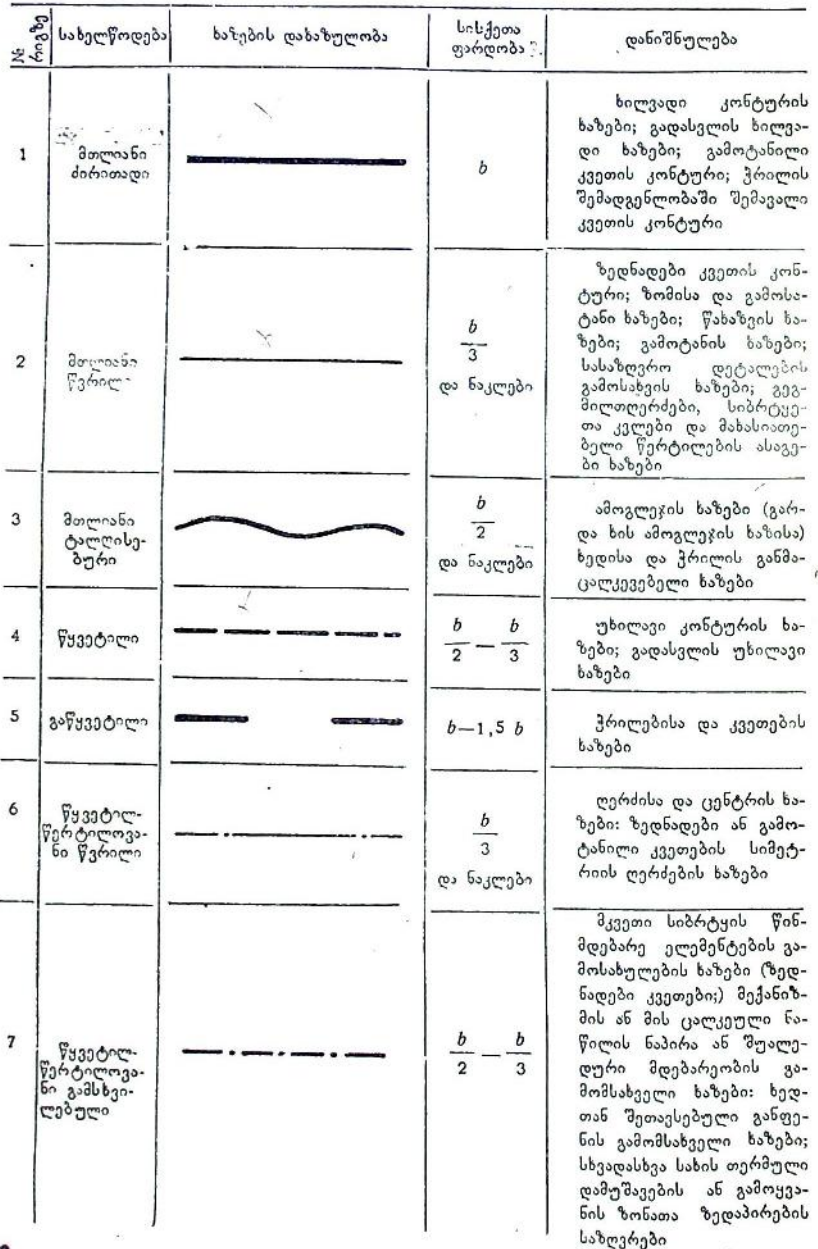 № რიგზე
სახელწოდება
ხაზების დახაზულობა
სისქეთა
ფარდობა
დანიშნულება
1
მთლიანი
ძირითადი
b
ხილვადი კონტურის
ხაზები; გადასვლის ხილვა-
დი ხაზები; გამოტანილი
კვეთის კონტური; ჭრილის
შემადგენლობაში შემავალი
კვეთის კონტური
2
მთლიანი
წვრილი
b
3
და ნაკლები
ზედნადები კვეთის კონ-
ტური; ზომისა და გამოსა-
ტანი ხაზები; წახაზვის ხა-
ზები; გამოტანის ხაზები;
სასაზღვრო დეტალების
გამოსახვის ხაზები; გეგ-
მილთღერძები, სიბრტყე-
თა კვლები და მახასიათე-
ბელი წერტილების ასაგე-
ბი ხაზები
3
მთლიანი
ტალღისე-
ბური
b
2
და ნაკლები
ამოგლეჯის ხაზები (გარ-
და ხის ამოგლეჯის ხაზისა)
ხედისა და ჭრილის განმა-
ცალკევებელი ხაზები
4
წყვეტილი
b b
2 — 3
უხილავი კონტურის ხა-
ზები; გადასვლის უხილავი
ხაზები
5
გაწყვეტილი
b—1,5 b
ჭრილებისა და კვეთების
ხაზები
6
წყვეტილ-
წერტილოვა-
ნი წვრილი
b
3
და ნაკლები
ღერძისა და ცენტრის ხა-
ზები: ზედნადები ან გამო-
ტანილი კვეთების სიმეტ-
რიის ღერძების ხაზები
7
წყვეტილ-
წერტილოვა-
ნი გამსხვი-
ლებული
b b
2 — 3
მკვეთი სიბრტყის წინ-
მდებარე ელემენტების გა-
მოსახულების ხაზები (ზედ-
ნადები კვეთები;) მექანიზ-
მის ან მის ცალკეული ნა-
წილის ნაპირა ან შუალე-
დური მდებარეობის გა-
მომსახველი ხაზები: ხედ-
თან შეთავსებული განფე-
ნის გამომსახველი ხაზები;
სხვადასხვა სახის თერმული
დამუშავების ან გამოყვა-
ნის ზონათა ზედაპირების
საზღვრები